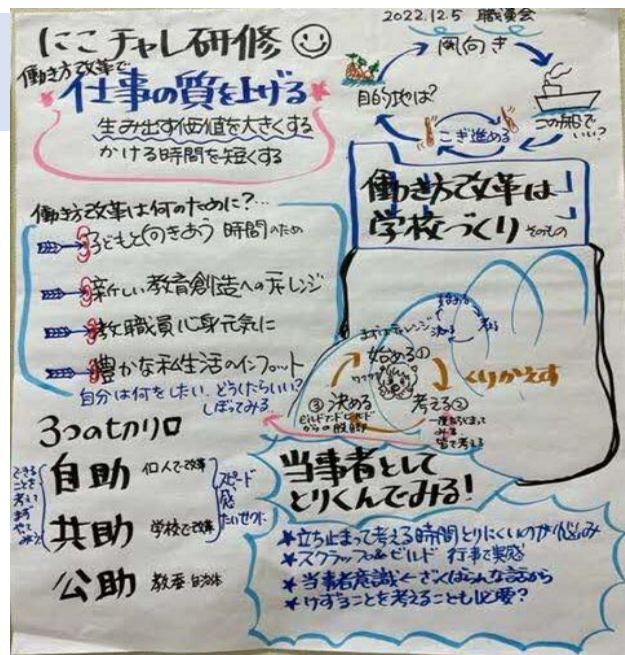 2022.12.5 職員会
にこチャレ研修
働き方改革で
仕事の質を上げる
生み出す価値を大きくする
かける時間を短くする
風向き
目的地は?
こぎ進める
この船でいい?
働き方改革は
学校づくり そのもの
働き方改革は何のために?…
子どもと向きあう 時間のため
新しい教育創造へのチャレンジ
教職員心身元気に
豊かな私生活のインプット
自分は何をしたい、どうしたらいい?
しぼってみる…
まずはチャレンジ
始める①
ワクワク
くりかえす
③決める
ビルドアンドビルド
からの脱却
考える②
一度立ち止まって
みる
皆で考える
3つの切り口
できることを考えてまずやってみよう
自助 個人で改革
共助 学校で改革
公助 教委 自治体
スピード感
たいせつに
当事者として
とりくんでみる!
立ち止まって考える時間とりにくいのが悩み
スクラップ&ビルド 行事で実感
当事者意識←ざっくばらんな話から
けずることを考えることも必要?